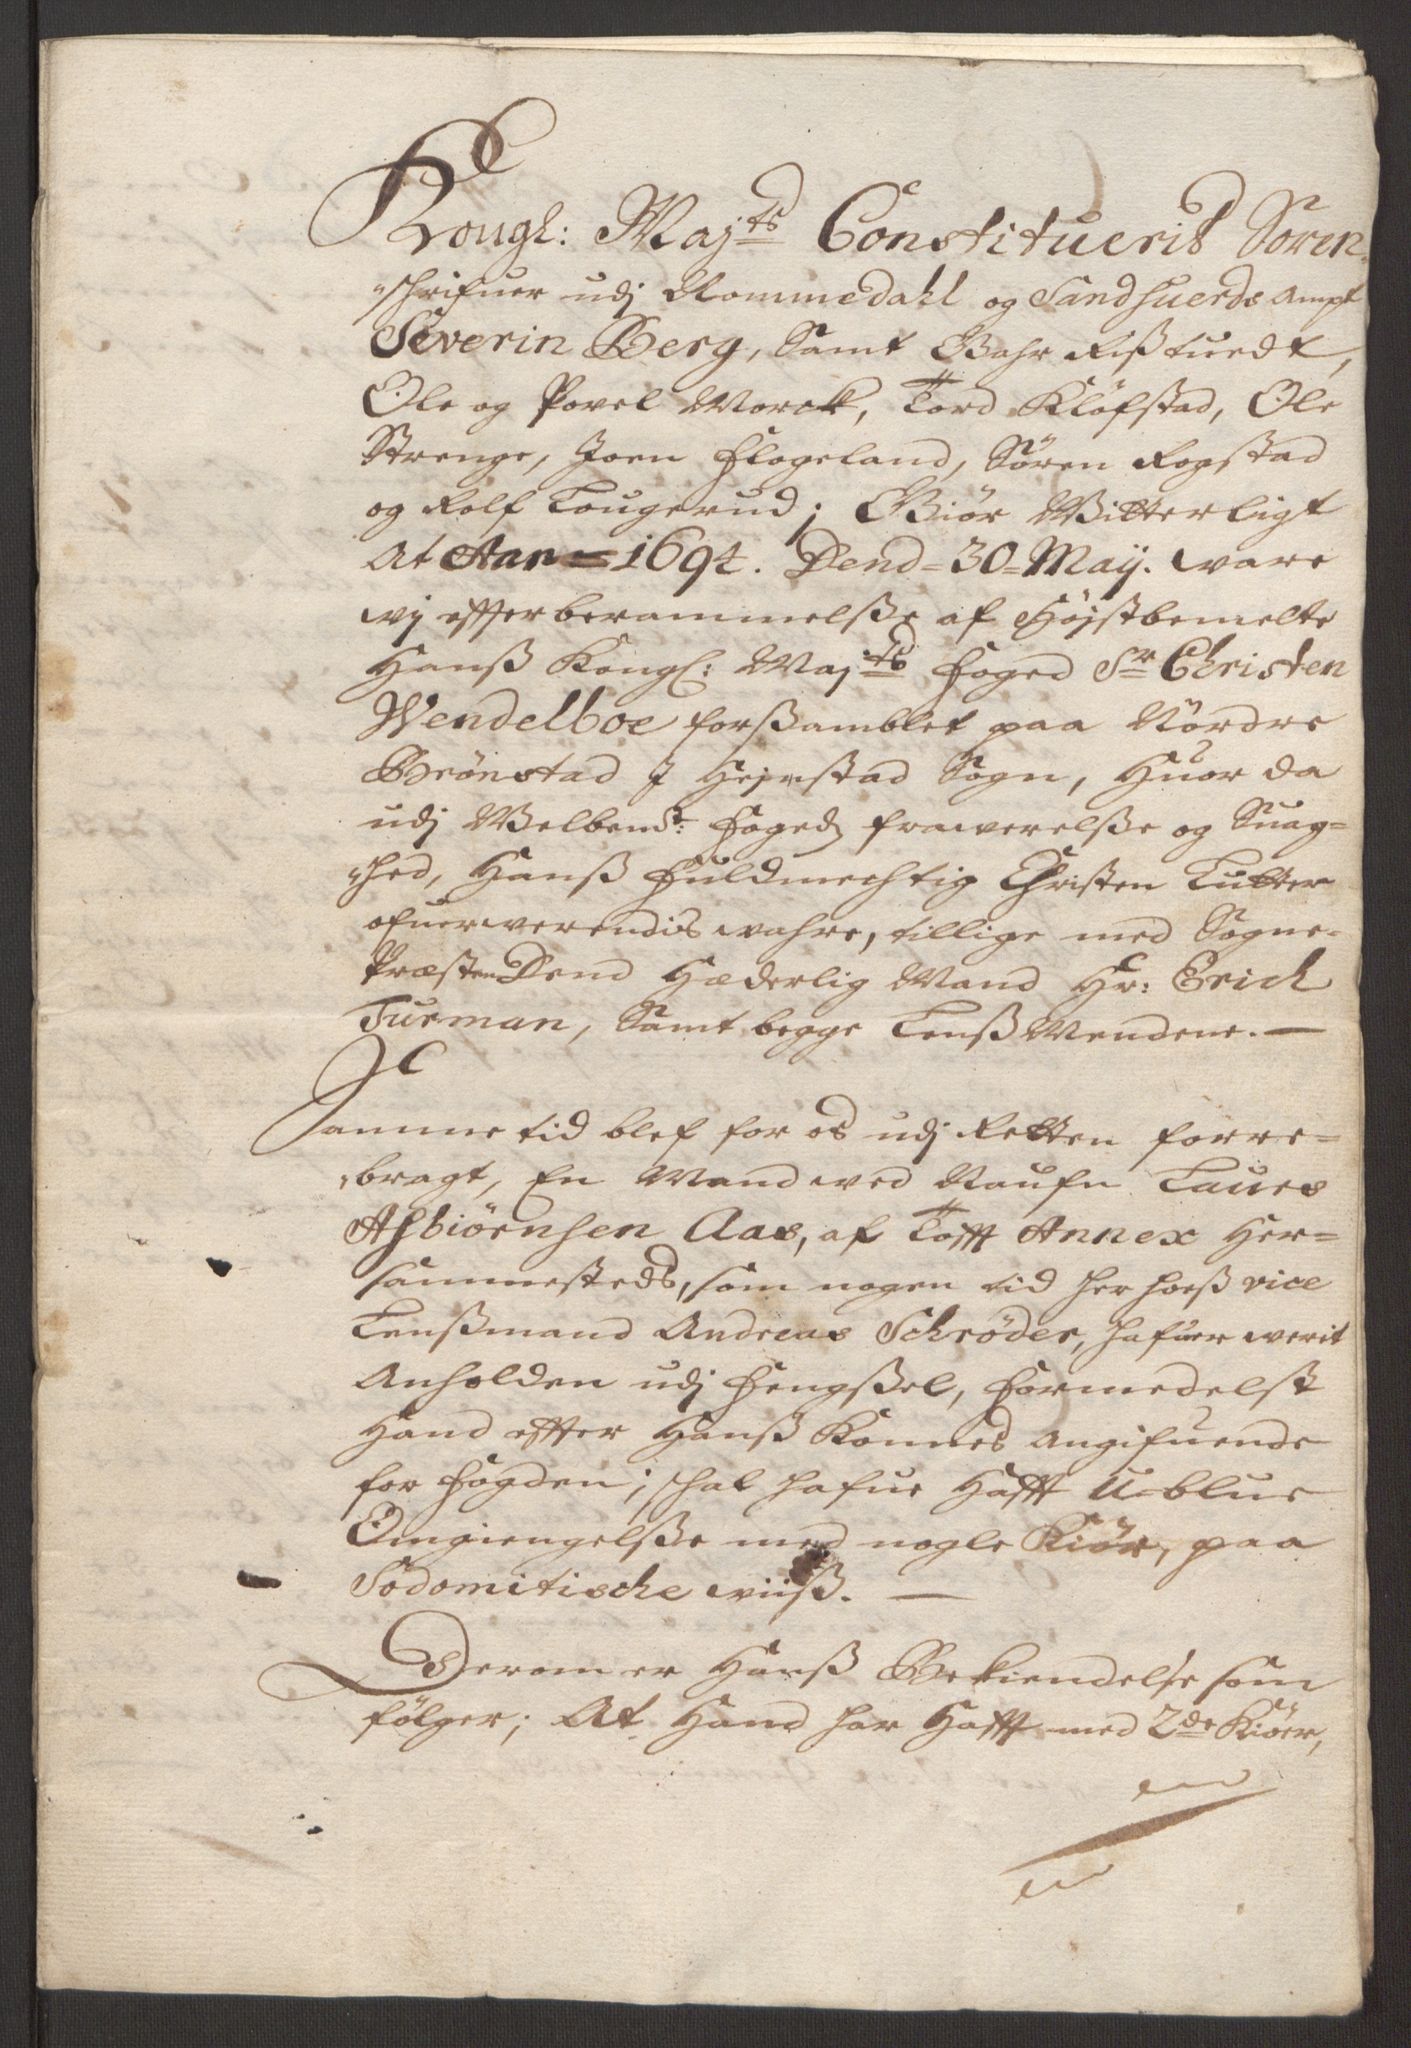 Kongl: Maj:ts Constituerit Soren-
schrifuer udj Nommedahl og Sandsuerds Ampt
Severin Berg, Samt Bahr Rißtuedt,
Ole og Povel Morck, Tord Klöfstad, Ole
Strenge, Joen Flogeland, Sören Rogstad
og Rolf Tougerud; Giör Witterligt
At Aar = 1694. Dend = 30 = Maij. ware
wj effter berammelsße af Höjstbemelte
Hanß Kongl: Maj:ts Foged Sr Christen
Wendelboe forßamblet paa Nordre
Brönstad J Hejrstad Sogn, Huor da
udj Welbemt: Fogedz frawerelsße og Suag-
hed, Hanß Fuldmechtig Christen Lutter
ofuerwerendis wahre, tillige med Sogne-
Præsten Dend Hæderlig Mand Hr: Erick
Turman, Samt begge Lenß Mendene. —
Samme tid blef for os udj Retten forre-
bragt, En Mand wed Naufn Laues
Asbiörnsen Aas, af Tofft Annex Her-
sammesteds, som nogen tid her hoeß vice
Lenßmand Andreas Schröder, hafuer werit
Anholden udj Fengßel, Formedelst
Hand effter Hanß Konnes Angifuende
for Fogden; schal hafue Hafft U-blue
Omgiengelsße med nogle Kiör, paa
Sodomitische wiiß. —
Derom er Hanß Bekiendelse som
fölger; At Hand har Hafft med 2de Kiöer,